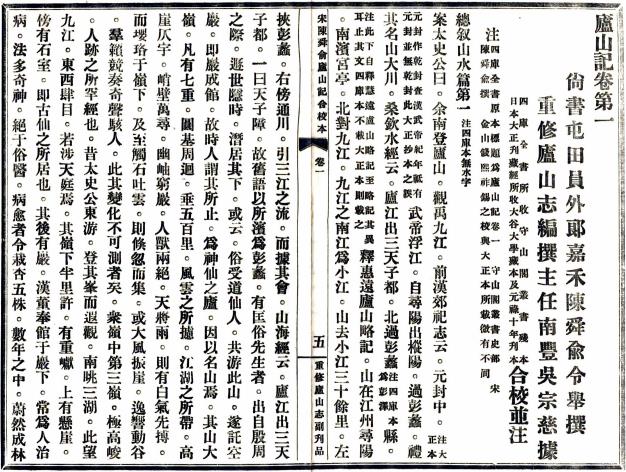 廬山記卷第一
尙書屯田員外郞嘉禾陳舜兪令舉撰
重修廬山志編撰主任南豐吳宗慈據
四庫全書所收守山閣叢書殘本
日本大正刋藏經所收大谷大學藏本及元祿十年刋本
合校並注
注
四庫全書原本標題爲廬山記卷一 守山閣叢書史部 宋
陳舜兪撰 金山錢熙祚錫之校與大正本所載微有不同
總敘山水篇第一 注四庫本無水字
案太史公曰。余南登廬山。觀禹九江。前漢郊祀志云。元封中。
注大正本
元封作乾封查漢武帝紀年祗有
元封並無乾封此大正抄本之誤
武帝浮江。自尋陽出樅陽。過彭蠡。禮
其名山大川。桑欽水經云。廬江出三天子都。北過彭蠡
注四庫本
爲彭澤
縣。
注此下自釋慧遠廬山略記至略記其異
耳止其文四庫本不載大正本則載之
釋惠遠廬山略記。山在江州尋陽
。南濱宮亭。北對九江。九江之南爲小江。山去小江三十餘里。左
挾彭蠡。右傍通川。引三江之流。而據其會。山海經云。廬江出三天
子都。一曰天子障。故舊語以所濱爲彭蠡。有匡俗先生者。出自殷周
之際。遯世隱時。潛居其下。或云。俗受道仙人。共游此山。遂託空
巖。卽巖成館。故時人謂其所止。爲神仙之廬。因以名山焉。其山大
嶺。凡有七重。圓基周迴。垂五百里。風雲之所攄。江湖之所帶。高
崖仄宇。峭壁萬尋。幽岫窮巖。人獸兩絕。天將雨。則有白氣先摶。
而瓔珞于嶺下。及至觸石吐雲。則倏忽而集。或大風振崖。逸響動谷
。羣籟競奏奇聲駭人。此其變化不可測者矣。衆嶺中第三嶺。極高峻
。人跡之所罕經也。昔太史公東游。登其峯而遐觀。南眺三湖。此望
九江。東西肆目。若涉天庭焉。其嶺下半里許。有重巘。上有懸崖。
傍有石室。卽古仙之所居也。其後有巖。漢董奉館于巖下。常爲人治
病。法多奇神。絕于俗醫。病愈者令栽杏五株。數年之中。蔚然成林
宋陳舜兪廬山記合校本 卷一
五
重修廬山志副刋品